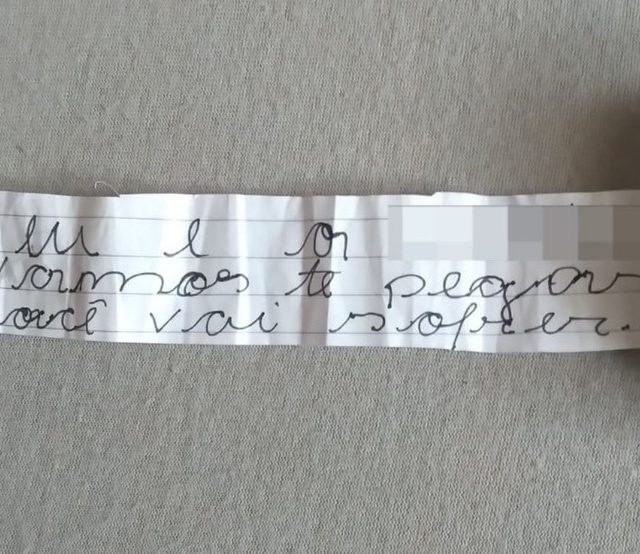 eu e a
vamos te pegar
você vai sofrer.